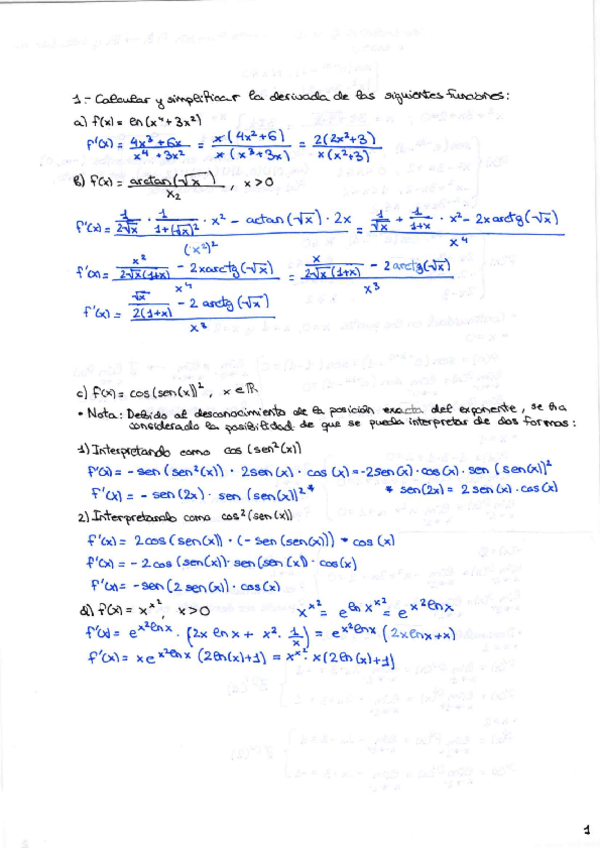 1.- Calcular y simplificar la derivada de las siguientes funciones:
a) f(x) = ln(x⁴+3x²)
f'(x) = (4x³+6x)/(x⁴+3x²) = x(4x²+6)/(x(x³+3x)) = 2(2x²+3)/(x(x²+3))
b) f(x) = arctan(√x)/x₂ , x>0
f'(x) = (1/(2√x) · 1/(1+(√x)²) · x² - actan(√x) · 2x)/(x²)² = (1/√x + 1/(1+x) · x² - 2xarctg(√x))/x⁴
f'(x) = (x²/(2√x(1+x)) - 2xarctg(√x))/x⁴ = (x/(2√x(1+x)) - 2arctg(√x))/x³
f'(x) = (√x/(2(1+x)) - 2 arctg(√x))/x³
c) f(x) = cos(sen(x))², x∈ℝ
• Nota: Debido al desconocimiento de la posición exacta del exponente, se ha
considerado la posibilidad de que se pueda interpretar de dos formas:
1) Interpretando como cos(sen²(x))
f'(x) = -sen(sen²(x)) · 2sen(x) · cos(x) = -2sen(x)·cos(x)·sen(sen(x))²
f'(x) = -sen(2x) · sen(sen(x))² * * sen(2x) = 2sen(x)·cos(x)
2) Interpretando como cos²(sen(x))
f'(x) = 2cos(sen(x)) · (-sen(sen(x))) · cos(x)
f'(x) = -2cos(sen(x))·sen(sen(x))·cos(x)
f'(x) = -sen(2sen(x))·cos(x)
d) f(x) = x^x², x>0 x^x² = e^ln x^x² = e^x²lnx
f'(x) = e^x²lnx · (2x lnx + x² · 1/x) = e^x²lnx (2xlnx+x)
f'(x) = xe^x²lnx (2ln(x)+1) = x^x² · x(2ln(x)+1)
1